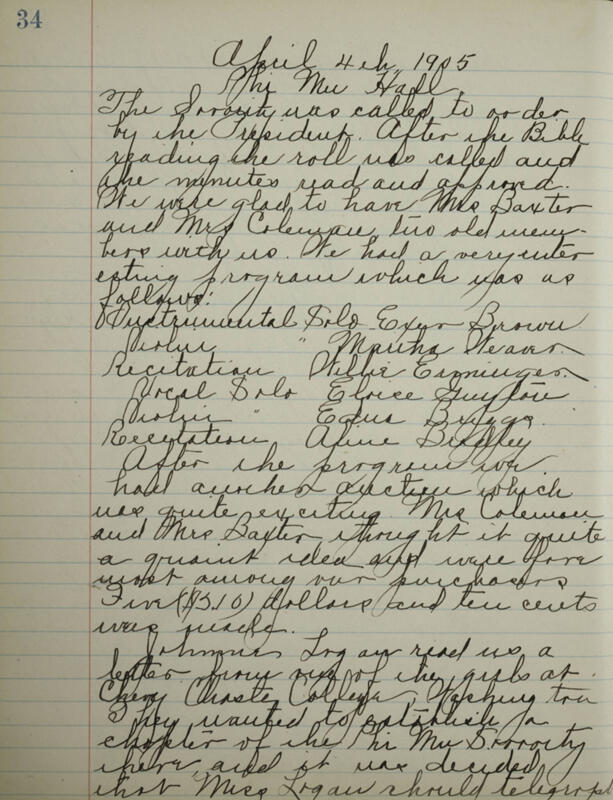 34
April 4th, 1905
Phi Mu Hall.
The Sorority was called to order
by the President. After the Bible
reading the roll was called and
the minutes read and approved.
We were glad to have Mrs Baxter
and Mrs Coleman, two old mem-
bers with us. We had a very inter
esting program which was as
follows:
Instrumental Solo Exer Brown
Violin " Martha Weaver.
Recitation Willie Erminger.
Vocal Solo Eloise
Violin " Edna Briggs.
Recitation Aline Bradley
After the program we
had another auction which
was quite exciting. Mrs Coleman
and Mrs Baxter thought it quite
a quaint idea and were fore
most among our purchasers
Five ($5.10) dollars and ten cents
was made.
Johnnie Logan read us a
letter from one of the girls at
Chevy Chase College,
They wanted to establish a
chapter of the Phi Mu Sorority
there and it was decided
that Miss Logan should telegraph